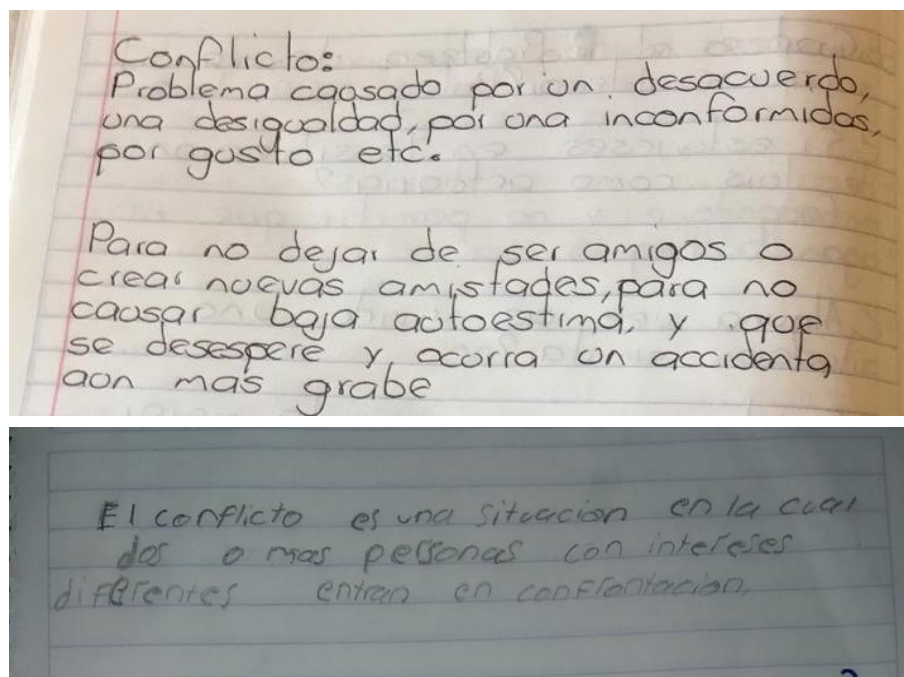 Conflicto:
Problema causado por un desacuerdo,
una desigualdad, por una inconformidas,
por gusto etc.
Para no dejar de ser amigos o
crear nuevas amistades, para no
causar baja autoestima, y que
se desespere y ocurra un accidenta
aon mas grabe
El conflicto es una situacion en la cual
dos o mas personas con intereses
diferentes entran en confrontacion,